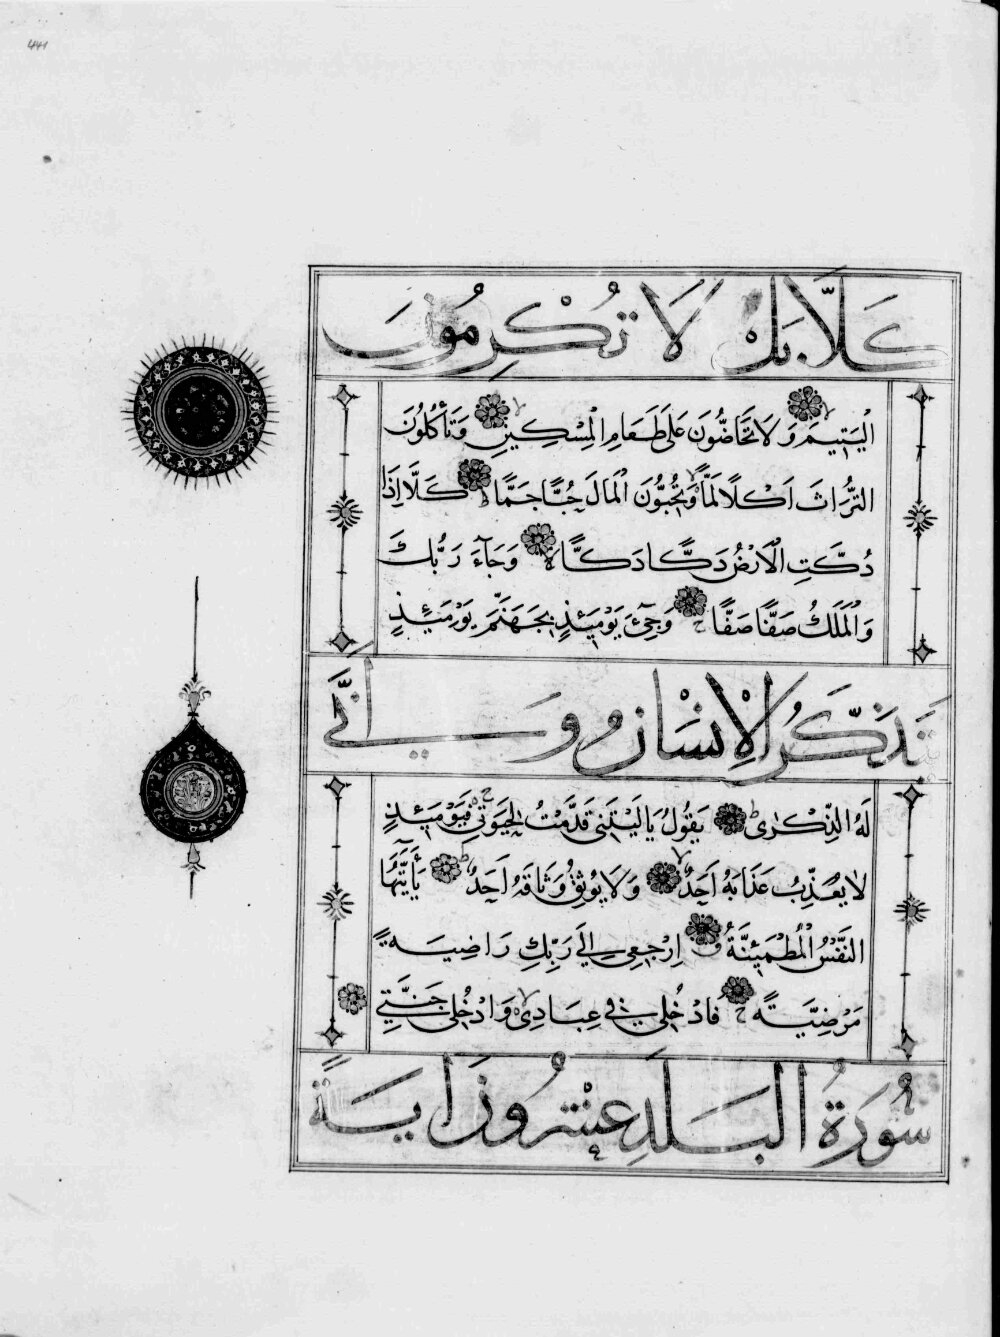 441
كَلَّا بَلْ لَا تُكْرِمُونَ
الْيَتِيمَ وَلَا تَحَاضُّونَ عَلَى طَعَامِ الْمِسْكِينِ وَتَأْكُلُونَ
التُّرَاثَ اَكْلًا لَمًّا وَتُحِبُّونَ الْمَالَ حُبًّا جَمًّا كَلَّا اِذَا
دُكَّتِ الْاَرْضُ دَكًّا دَكًّا وَجَآءَ رَبُّكَ
وَالْمَلَكُ صَفًّا صَفًّا وَجِيءَ يَوْمَئِذٍ بِجَهَنَّمَ يَوْمَئِذٍ
يَتَذَكَّرُ الْاِنْسَانُ وَاَنَّى
لَهُ الذِّكْرٰى يَقُولُ يَا لَيْتَنِي قَدَّمْتُ لِحَيَوتِي فَيَوْمَئِذٍ
لَا يُعَذِّبُ عَذَابَهُ اَحَدٌ وَلَا يُوثِقُ وَثَاقَهُ اَحَدٌ يَآاَيَّتُهَا
النَّفْسُ الْمُطْمَئِنَّةُ اِرْجِعِي اِلَى رَبِّكِ رَاضِيَةً
مَرْضِيَّةً فَادْخُلِي فِي عِبَادِي وَادْخُلِي جَنَّتِي
سُورَةُ الْبَلَدِ عِشْرُونَ اٰيَةً